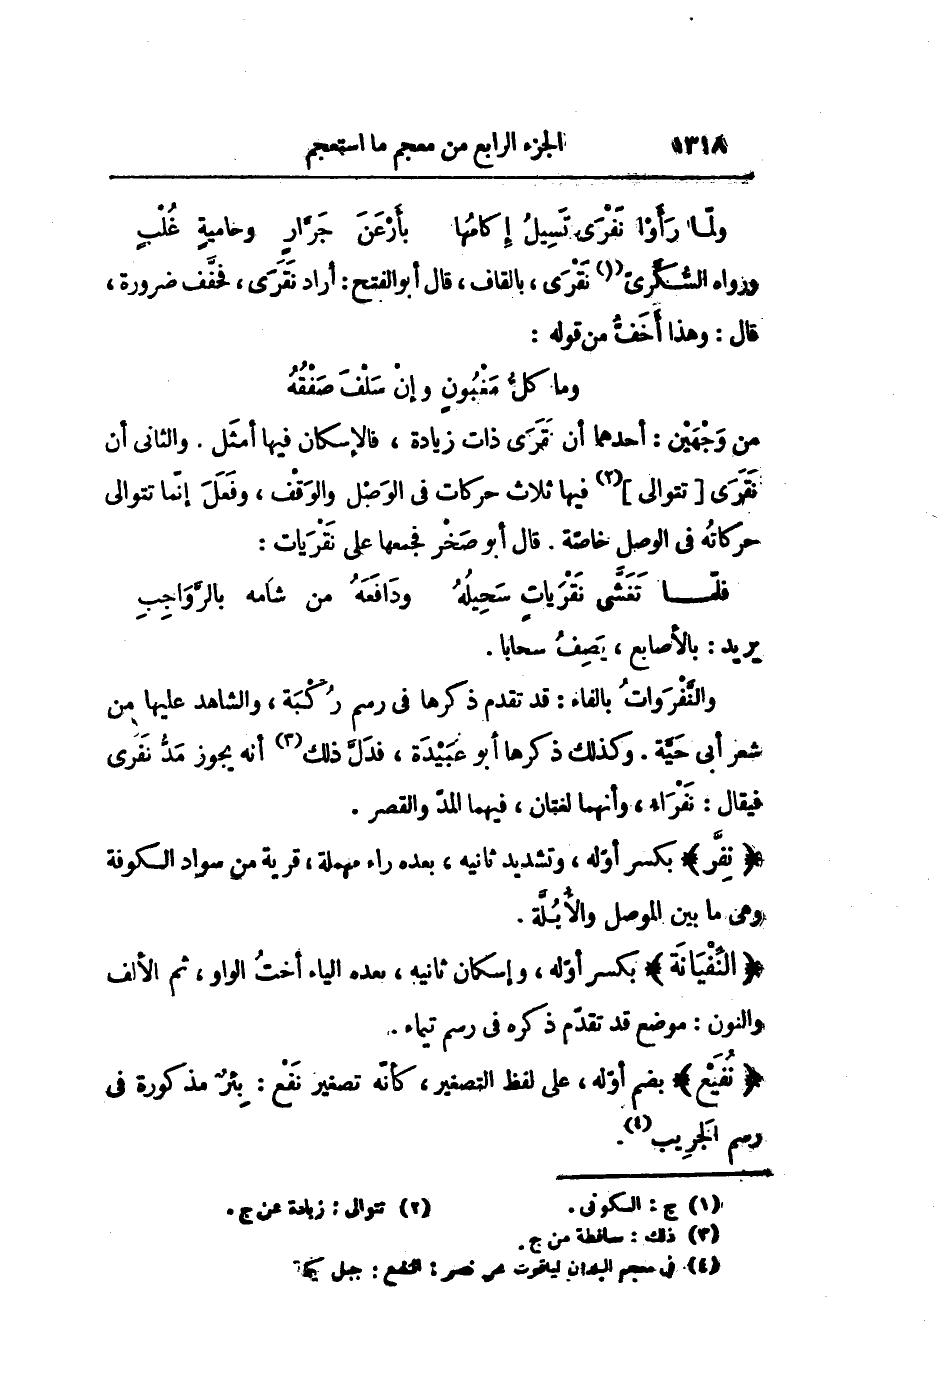 ١٣١٨ الجزء الرابع من معجم ما استعجم
ولمّا رَأَوْا نَفْرَى تَسِيلُ إِكامُها بأَرْعَنَ جَرَّارٍ وحاميةٍ غُلْبِ
ورواه السُّكَّرىّ(١) نَقْرَى ، بالقاف ، قال أبو الفتح : أراد نَقَرَى ، فخفَّف ضرورة ،
قال : وهذا أَخَفُّ من قوله :
وما كلُّ مَغْبُونٍ وإنْ سَلْفَ صَفْقُهُ
من وَجْهَيْن : أحدهما أن نَقَرَى ذات زيادة ، فالإسكان فيها أمثَل . والثانى أن
نَقَرَى [ تتوالى ](٢) فيها ثلاث حركات فى الوَصْل والوَقْف ، وفَعَلَ إنّما تتوالى
حركاتُه فى الوصل خاصّة . قال أبو صَخْر فجمعها على نَقْرَيات :
فلمّــا تَغَشَّى نَقْرَياتٍ سَحِيلُهُ ودَافَعَهُ من شامه بالرَّوَاجِبِ
يريد : بالأصابع ، يَصِفُ سحابا .
والنَّفْرَوَاتُ بالفاء : قد تقدم ذكرها فى رسم رُكْبَة ، والشاهد عليها من
شعر أبى حَيَّة . وكذلك ذكرها أبو عُبَيْدَة ، فدَلَّ ذلك(٣) أنه يجوز مَدُّ نَفَرَى
فيقال : نَفْرَاء ، وأنهما لغتان ، فيهما المدّ والقصر .
﴿ نِفَّر ﴾ بكسر أوّله ، وتشديد ثانيه ، بعده راء مهملة ، قرية من سواد الكوفة
وهى ما بين الموصل والأُبُلَّة .
﴿ النِّفْيَانَة ﴾ بكسر أوّله ، وإسكان ثانيه ، بعده الياء أختُ الواو ، ثم الألف
والنون : موضع قد تقدّم ذكره فى رسم تيماء .
﴿ نُفَيْع ﴾ بضم أوّله ، على لفظ التصغير ، كأنّه تصغير نَفْع : بِئرٌ مذكورة فى
رسم الجَرِيب(٤).
(١) ج : السكونى . (٢) تتوالى : زيادة عن ج .
(٣) ذلك : ساقطة من ج .
(٤) فى معجم البلدان لياقوت عن نصر : النفيع : جبل بمكة